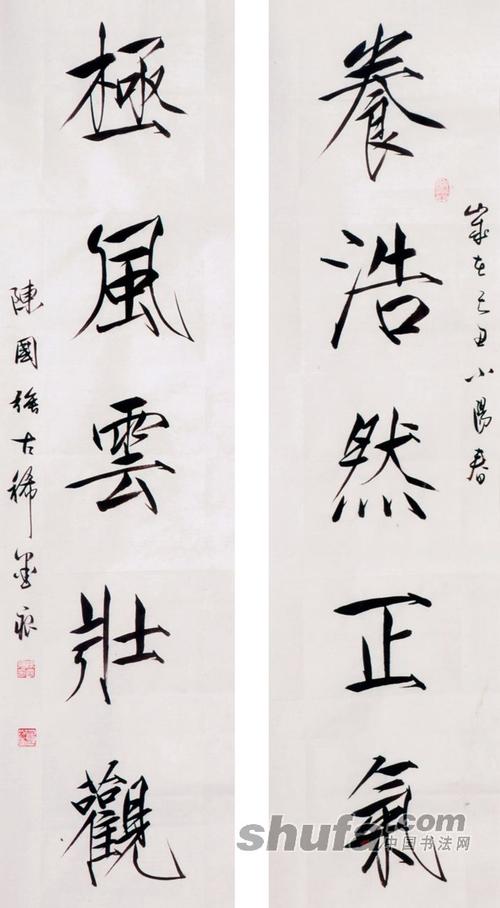 歲在己丑小陽春
養浩然正氣
極風雲壯觀
陳國強古稀墨痕
shufa.com
中国书法网